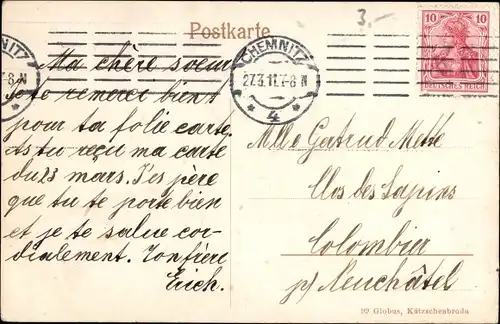 Postkarte
3.-
CHEMNITZ
27.3.11.7-8 N
* 4 *
10 10
DEUTSCHES REICH
Ma chère soeur
je te remerci bient
pour ta folie carte.
As tu reçu ma carte
du 23 mars. J'es père
que tu te porte bien
et je te salue cor-
dialement. Ton frère
Erich.
Mlle Gertrud
Clos des Sapins
Colombier
p/ Neuchâtel
Globus, Kötzschenbroda